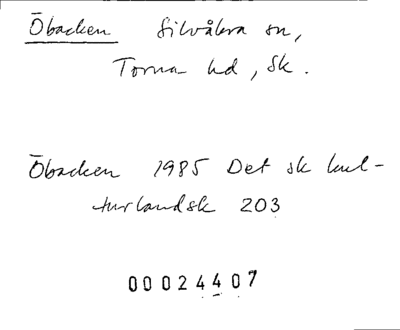 Öbacken Silvåkra sn,
Torna hd, Sk.
Öbacken 1985 Det sk kul-
turlandsk 203
00024407